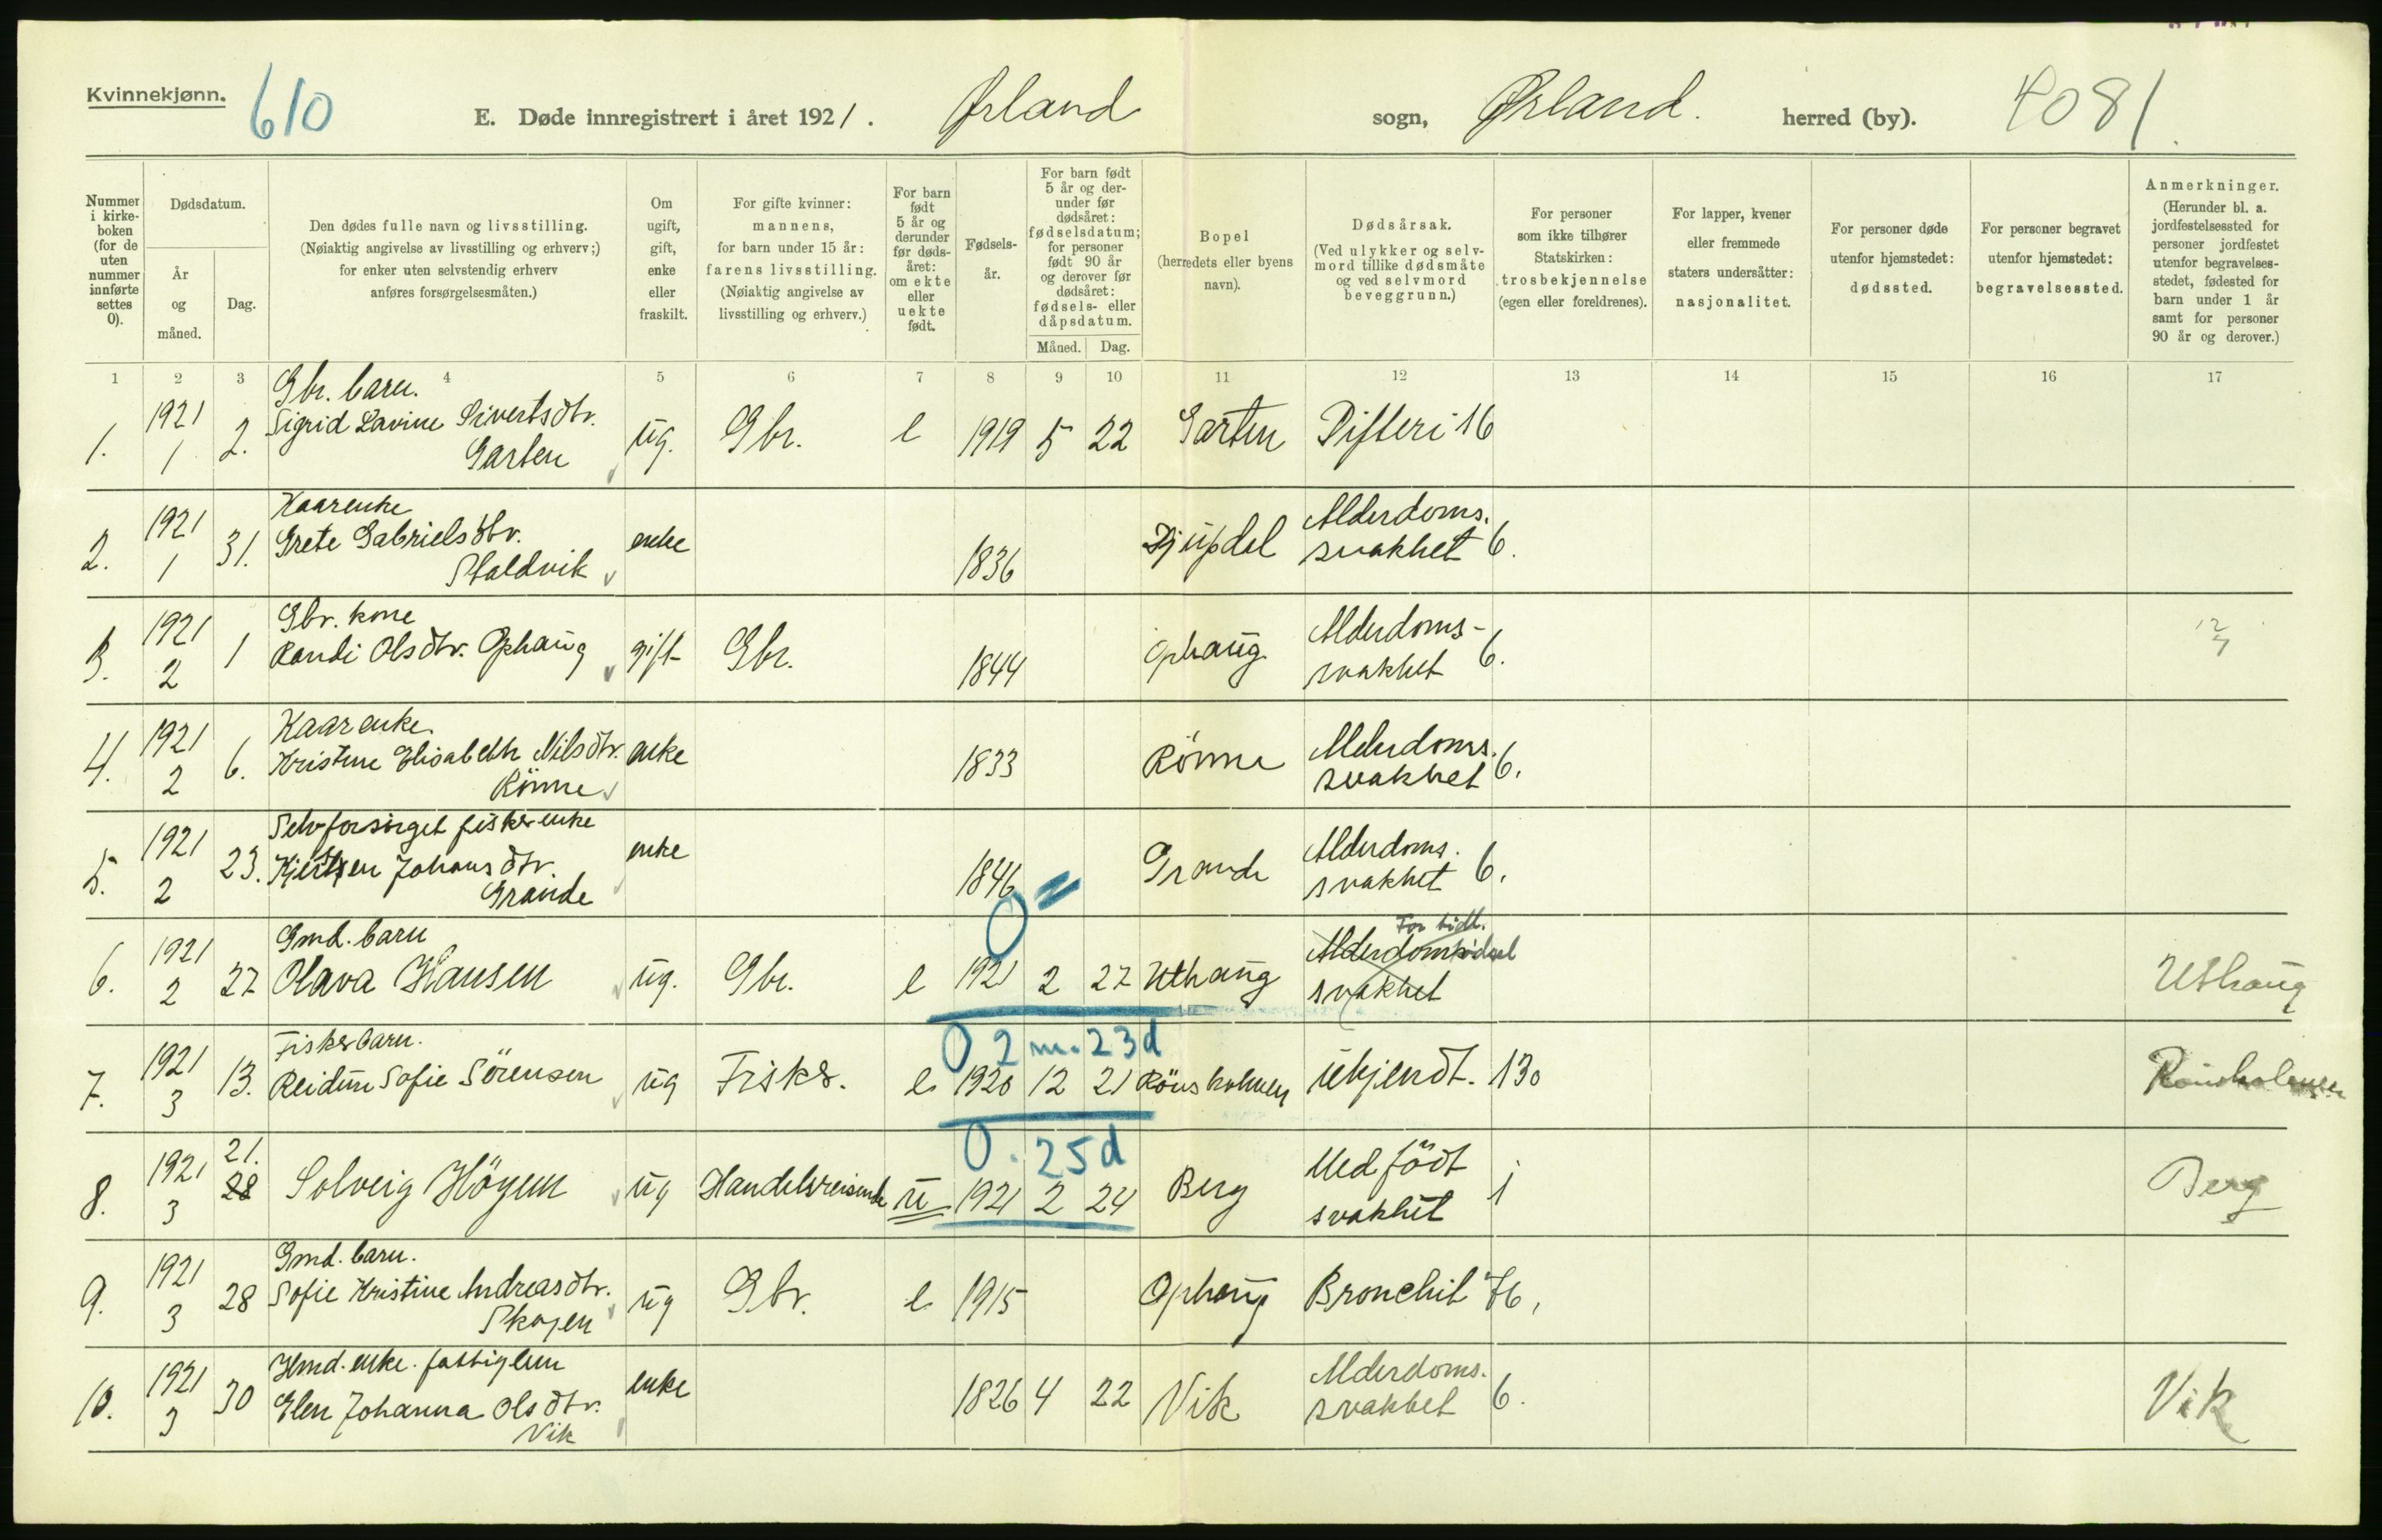 Kvinnekjønn.
610
E. Døde innregistrert i året 1921.
Ørland sogn, Ørland. herred (by).
4081.
Nummer i kirkeboken (for de uten nummer innførte settes 0).
Dødsdatum.
År og måned.
Dag.
Den dødes fulle navn og livsstilling. (Nøiaktig angivelse av livsstilling og erhverv;) for enker uten selvstendig erhverv anføres forsørgelsesmåten.)
Om ugift, gift, enke eller fraskilt.
For gifte kvinner: mannens, for barn under 15 år: farens livsstilling. (Nøiaktig angivelse av livsstilling og erhverv.)
For barn født 5 år og derunder før dødsåret: om ekte eller uekte født.
Fødselsår.
For barn født 5 år og derunder før dødsåret: fødselsdatum; for personer født 90 år og derover før dødsåret: fødsels- eller dåpsdatum.
Måned.
Dag.
Bopel (herredets eller byens navn).
Dødsårsak. (Ved ulykker og selvmord tillike dødsmåte og ved selvmord beveggrunn.)
For personer som ikke tilhører Statskirken: trosbekjennelse (egen eller foreldrenes).
For lapper, kvener eller fremmede staters undersåtter: nasjonalitet.
For personer døde utenfor hjemstedet: dødssted.
For personer begravet utenfor hjemstedet: begravelsessted.
Anmerkninger. (Herunder bl. a. jordfestelsessted for personer jordfestet utenfor begravelsesstedet, fødested for barn under 1 år samt for personer 90 år og derover.)
1 2 3 4 5 6 7 8 9 10 11 12 13 14 15 16 17
Gbr. barn.
1. 1921 1 2. Sigrid Lavine Sivertsdtr. Garten ug. Gbr. e 1919 5 22 Garten Difteri 16
Kaarenke
2. 1921 1 31. Grete Gabrielsdtr. Staldvik enke 1836 Djupdal Alderdoms. svakhet 6.
Gbr. kone
3. 1921 2 1 Randi Olsdtr. Ophaug gift Gbr. 1844 Ophaug Alderdoms- svakhet 6. 12/7
Kaarenke.
4. 1921 2 6. Kristine Elisabeth Nilsdtr. Rönne enke 1833 Rönne Alderdoms. svakhet 6.
Selvforsörget fiskerenke
5. 1921 2 23. Johansdtr. Grande enke 1846 Grande Alderdoms. svakhet 6.
0
Gmd. barn
For tidl.
6. 1921 2 27 Olava Hansen ug. Gbr. e 1921 2 27 Uthaug Alderdoms födsel svakhet Uthaug
0 2 m. 23 d
Fiskerbarn.
7. 1921 3 13. Reidun Sofie Sörensen ug Fisker. e 1920 12 21 Rönsholmen ukjendt. 130 Rönsholmen
0. 25 d
21.
8. 1921 3 28 Solveig Höyem ug Handelsreisende u 1921 2 24 Berg Medfödt svakhet 1 Berg
Gmd. barn.
9. 1921 3 28 Sofie Kristine Andreasdtr. Skogen ug Gbr. e 1915 Ophaug Bronchit 46,
Hmd. enke. fattiglem
10. 1921 3 30 Elen Johanna Olsdtr. Vik enke 1826 4 22 Vik Alderdoms. svakhet 6. Vik